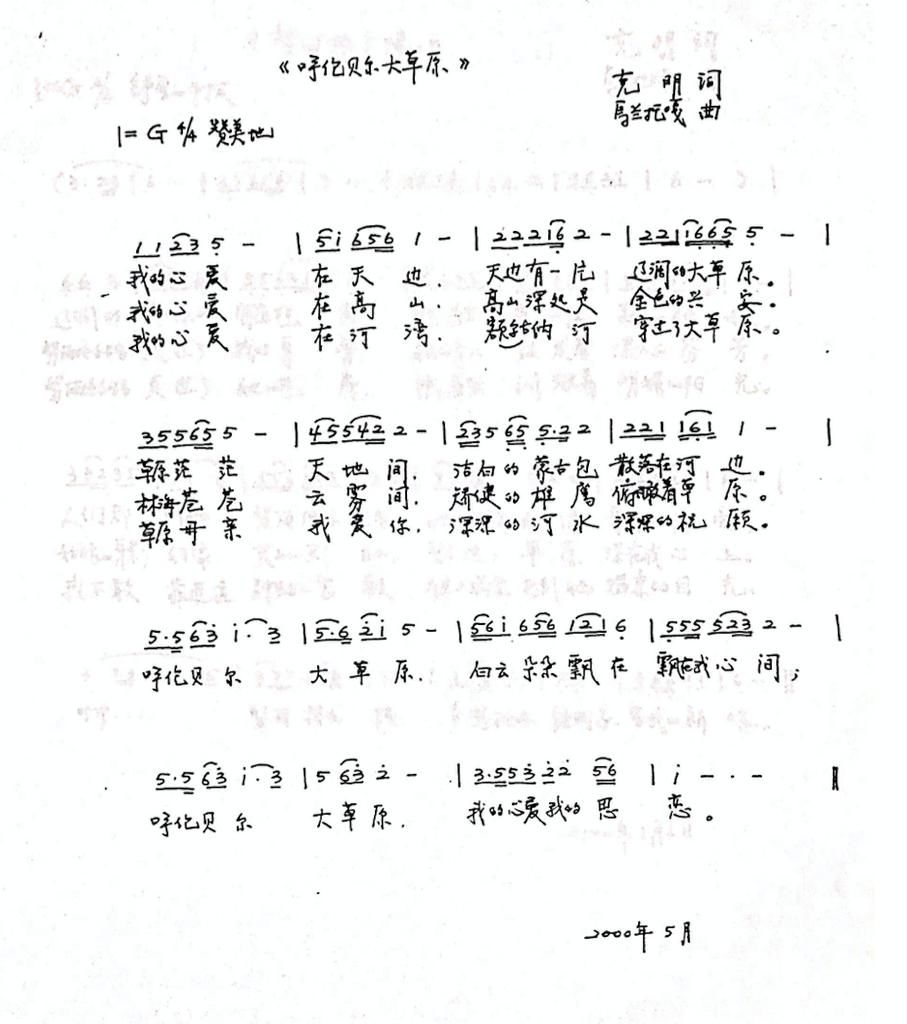 《呼伦贝尔大草原》
克明 词
乌兰托嘎 曲
1=G 4/4 赞美地
1 1 2 3 5 - | 5 i 6 5 6 1 - | 2 2 2 1 6 2 - | 2 2 1 1 6 6 5 5 - |
我的心爱 在天边 天边有一片 辽阔的大草原。
我的心爱 在高山. 高山深处是 金色的兴安.
我的心爱 在河湾. 额尔古纳河 穿过了大草原。
3 5 5 6 5 5 - | 4 5 5 4 2 2 - | 2 3 5 6 5 5·2 2 | 2 2 1 1 6 1 1 - |
草原茫茫 天地间. 洁白的蒙古包 散落在河边。
林海苍苍 云雾间. 矫健的雄鹰 俯瞰着草原。
草原母亲 我爱你. 深深的河水 深深的祝愿。
5·5 6 3 i·3 | 5·6 2 i 5 - | 5 6 i 6 5 6 1 2 1 6 | 5 5 5 5 2 3 2 - |
呼伦贝尔 大草原. 白云朵朵飘在 飘在我心间;
5·5 6 3 i·3 | 5 6 3 2 - | 3·5 5 3 2 2 5 6 | i - - - ‖
呼伦贝尔 大草原. 我的心爱我的思恋。
2000年5月